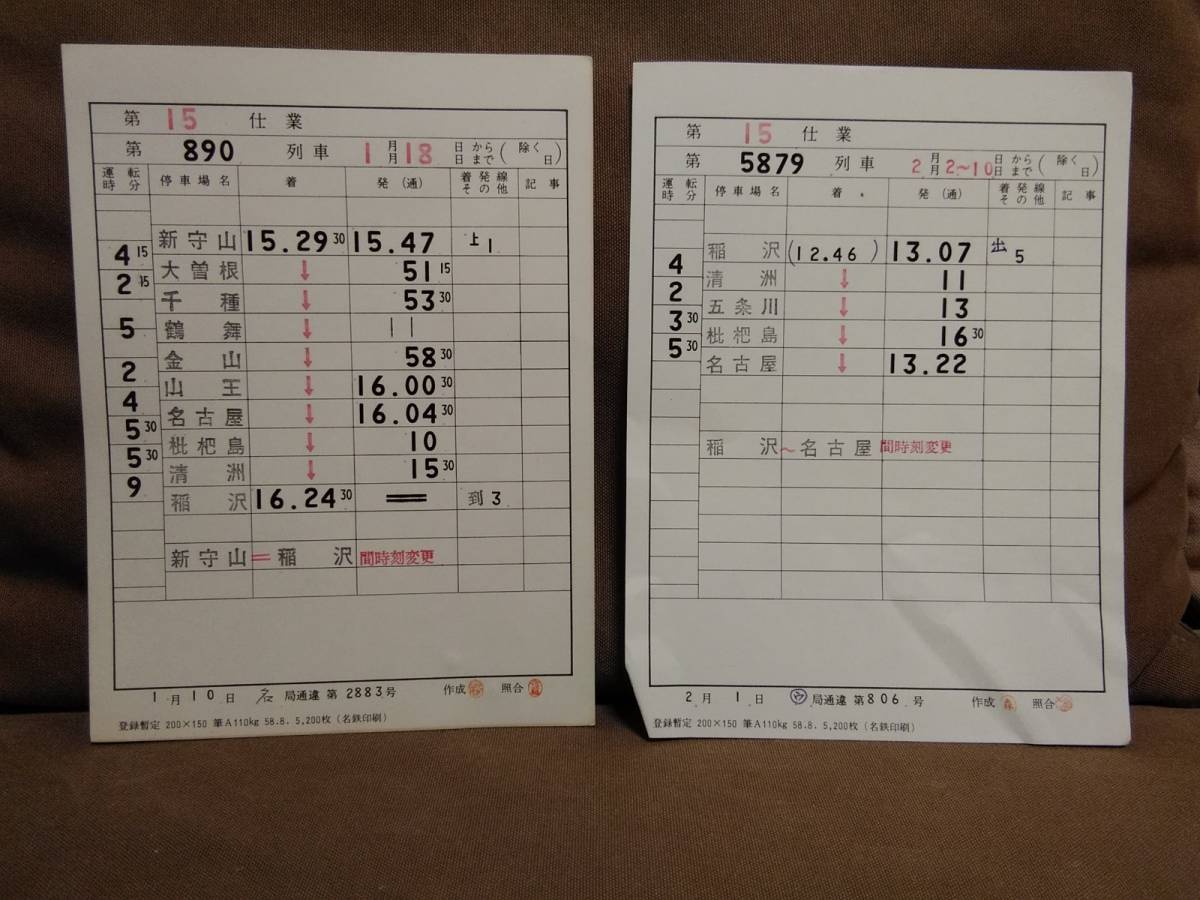 第 15 仕業
第 890 列車 1月 月18 日から 日まで (除く 日)
運転時分 停車場名 着 発(通) 着発線その他 記事
新守山 15.29 30 15.47 上1
4 15
大曽根 ↓ 51 15
2 15
千種 ↓ 53 30
鶴舞 ↓ | |
5
金山 ↓ 58 30
2
山王 ↓ 16.00 30
4
名古屋 ↓ 16.04 30
5 30
枇杷島 ↓ 10
5 30
清洲 ↓ 15 30
9
稲沢 16.24 30 = 到3
新守山=稲沢 間時刻変更
1月10日 名 局通達 第2883号 作成 照合
登録暫定 200×150 筆A110kg 58.8. 5,200枚(名鉄印刷)
第 15 仕業
第 5879 列車 2月 月2~10 日から 日まで (除く 日)
運転時分 停車場名 着 発(通) 着発線その他 記事
稲沢 (12.46) 13.07 出5
4
清洲 ↓ 11
2
五条川 ↓ 13
3 30
枇杷島 ↓ 16 30
5 30
名古屋 ↓ 13.22
稲沢~名古屋 間時刻変更
2月1日 ウ 局通達 第806号 作成 森 照合
登録暫定 200×150 筆A110kg 58.8. 5,200枚(名鉄印刷)